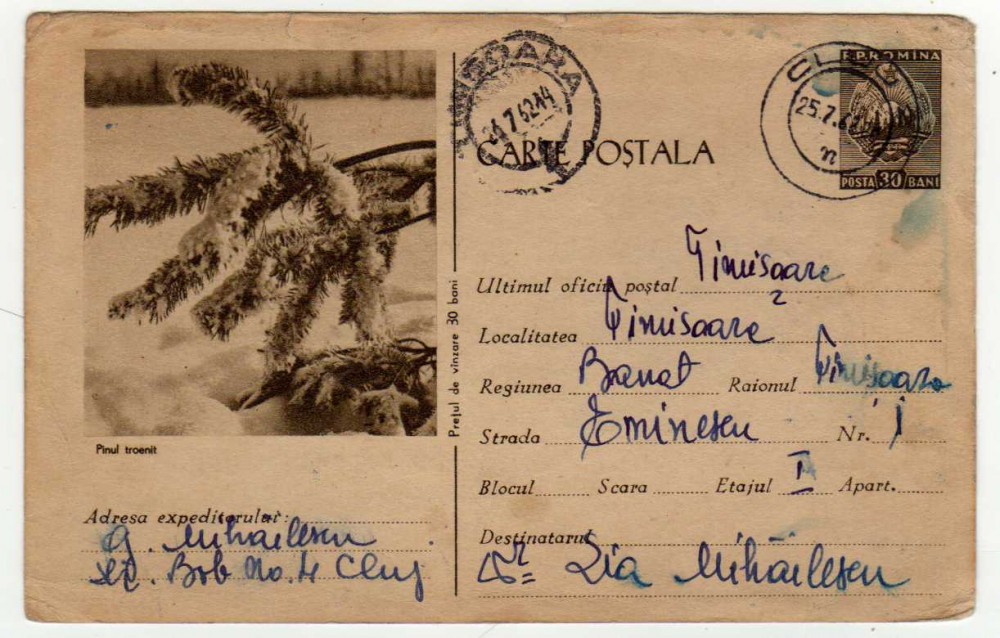 TIMISOARA
26.7.62 14
CLUJ
25.7.6
R.P.ROMINA
POSTA 30 BANI
CARTE POȘTALA
Ultimul oficiu poștal Timișoara 2
Localitatea Timisoara
Regiunea Banat Raionul Timișoara
Strada Eminescu Nr. 1
Blocul Scara Etajul I Apart.
Destinatarul
Dr Lia Mihăilescu
Prețul de vînzare 30 bani
Pinul troenit
Adresa expeditorului:
G. Mihăilescu
str. Bob No. 4 Cluj